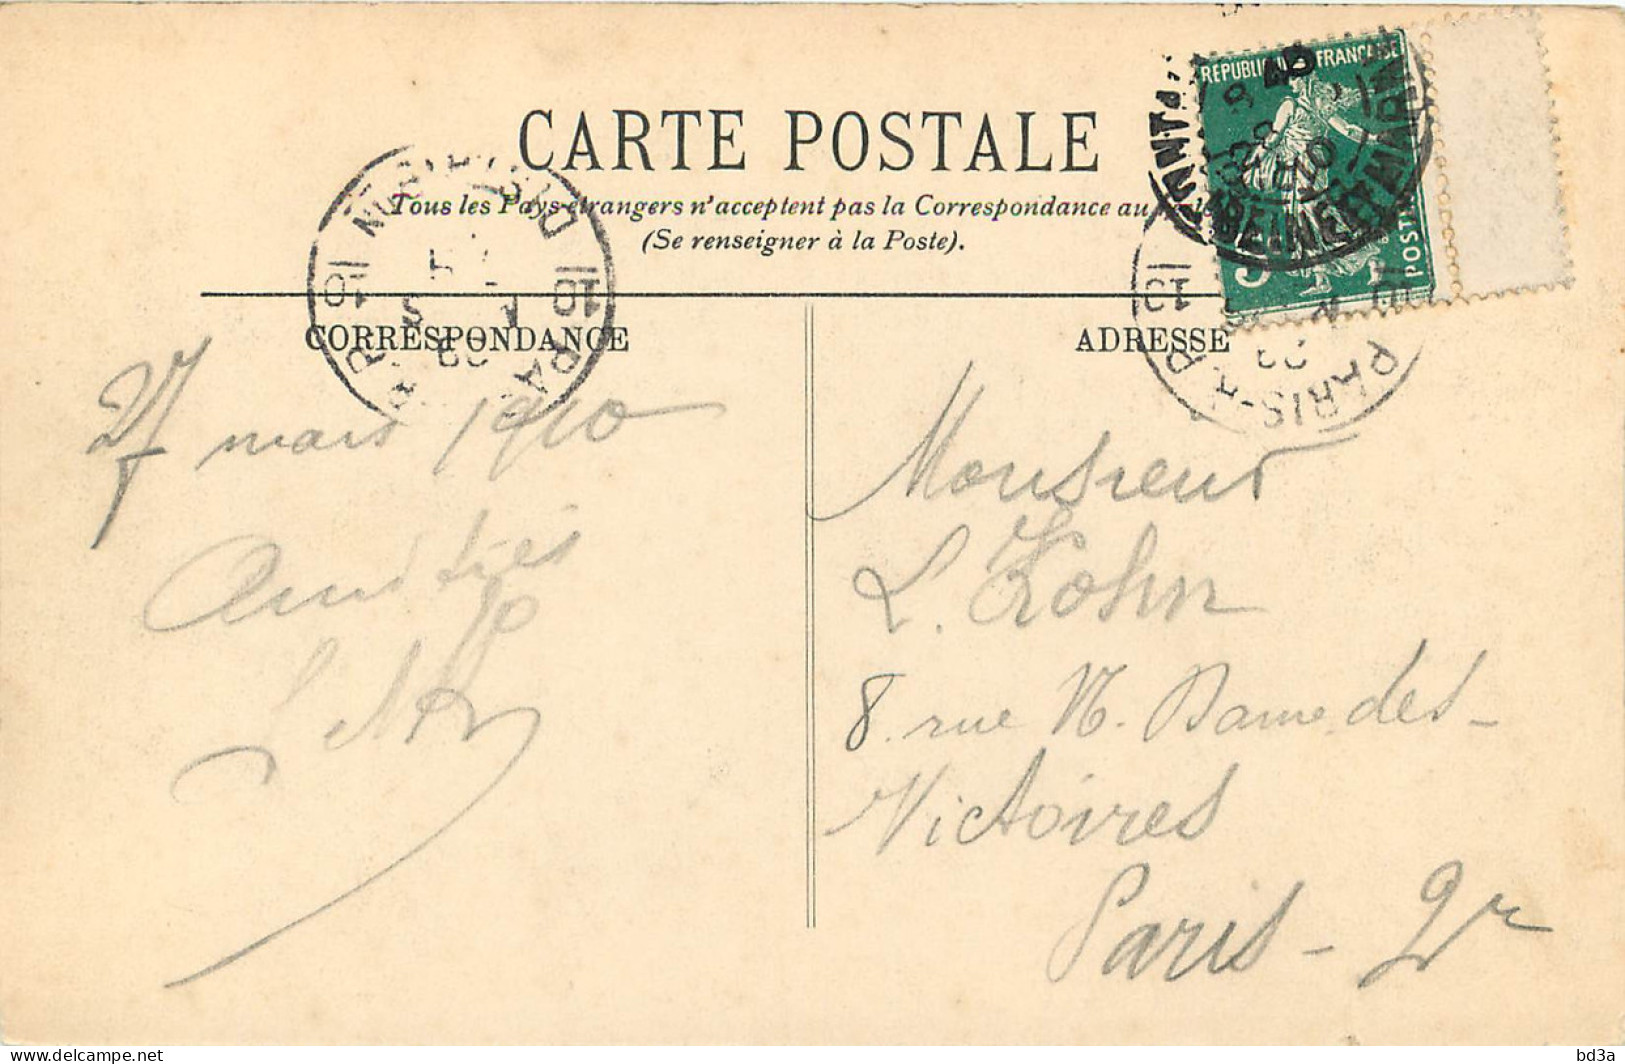 CARTE POSTALE
Tous les Pays étrangers n'acceptent pas la Correspondance au
(Se renseigner à la Poste).
REPUBLIQUE FRANÇAISE
POSTES
CORRESPONDANCE
27 mars 1910
Amitiés
ADRESSE
Monsieur
L. Kohn
8. rue N. Dame des-
Victoires
Paris - 2r
10
PARIS
10
PARIS
bd3a